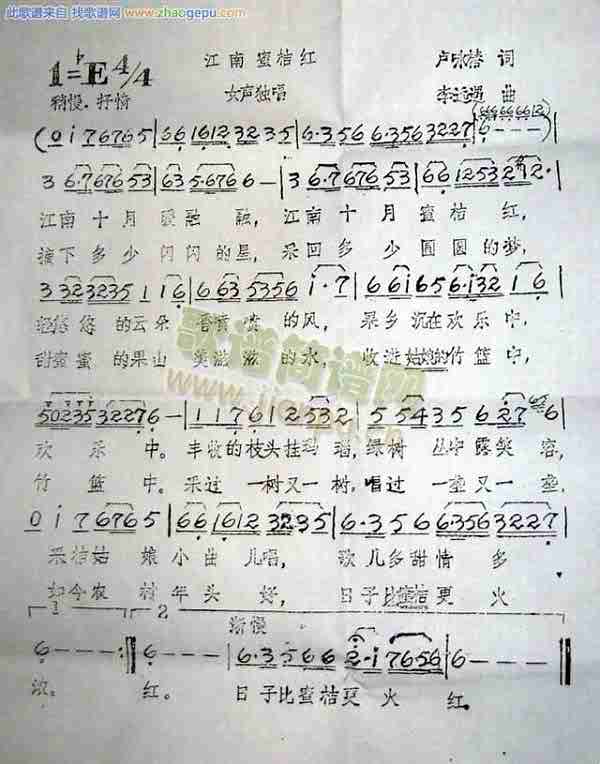 此歌谱来自 找歌谱网 www.zhaogepu.com
江南蜜桔红
1=♭E 4/4
卢咏椿 词
稍慢.抒情
女声独唱
曲
(0 i 76765|66 161232 35|6·356 6·3563227|6---)
3 6·7676 53|63 5·676 6-|3 6·7676 53|66 12532 212·|
江南十月暖融融,江南十月蜜桔红,
摘下多少闪闪的星,采回多少圆圆的梦,
3 323 3235 116|663 5356 i·7|66i656·i32 16|
轻悠悠的云朵香喷喷的风,果乡沉在欢乐中,
甜蜜蜜的果山美滋滋的水,收进姑娘的竹篮中,
5023532276-|1176125 32|5543562·7 6|
欢乐中。丰收的枝头挂玛瑙,绿树丛中露笑容,
竹篮中。采过一树又一树,唱过一垄又一垄,
0 i 76765|66 161232 35|6·356 63563227|
采桔姑娘小曲儿唱,歌儿多甜情多
如今农村年头好,日子比蜜桔更火
1 2 渐慢
6---:‖6---|6·35662·i7656|6---‖
浓。 红。 日子比蜜桔更火红。